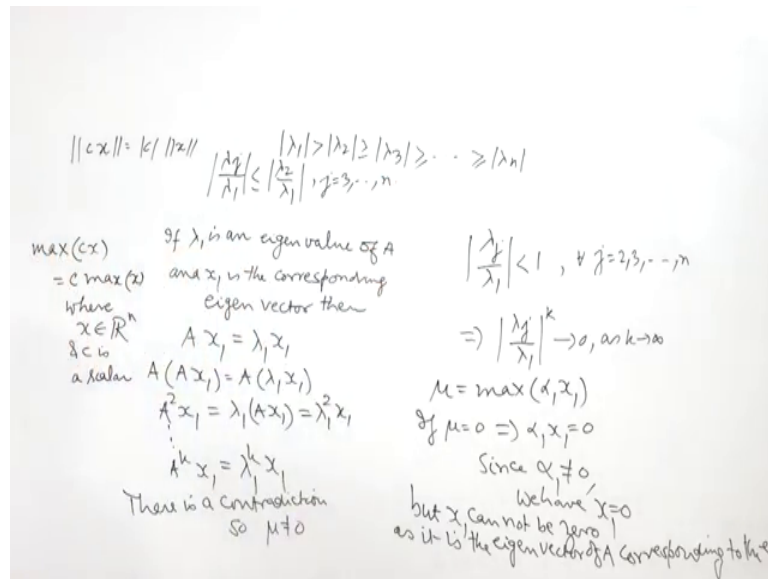 ||cx|| = |c| ||x||
|λ₁| > |λ₂| ≥ |λ₃| ≥ ⋯ ≥ |λn|
|λj/λ₁| ≤ |λ₂/λ₁|, j=3,⋯,n
max(cx)
= c max(x)
where
x ∈ ℝⁿ
& c is
a scalar
If λ₁ is an eigen value of A
and x₁ is the corresponding
eigen vector then
A x₁ = λ₁x₁
A(Ax₁) = A(λ₁x₁)
A²x₁ = λ₁(Ax₁) = λ₁²x₁
⋮
Aᵏx₁ = λ₁ᵏx₁
There is a contradiction
so μ≠0
|λj/λ₁| < 1, ∀ j=2,3,⋯,n
⇒ |λj/λ₁|ᵏ → 0, as k→∞
μ = max(α₁x₁)
If μ=0 ⇒ α₁x₁=0
Since α₁≠0,
we have x₁=0
but x₁ cannot be zero
as it is the eigen vector of A corresponding to the